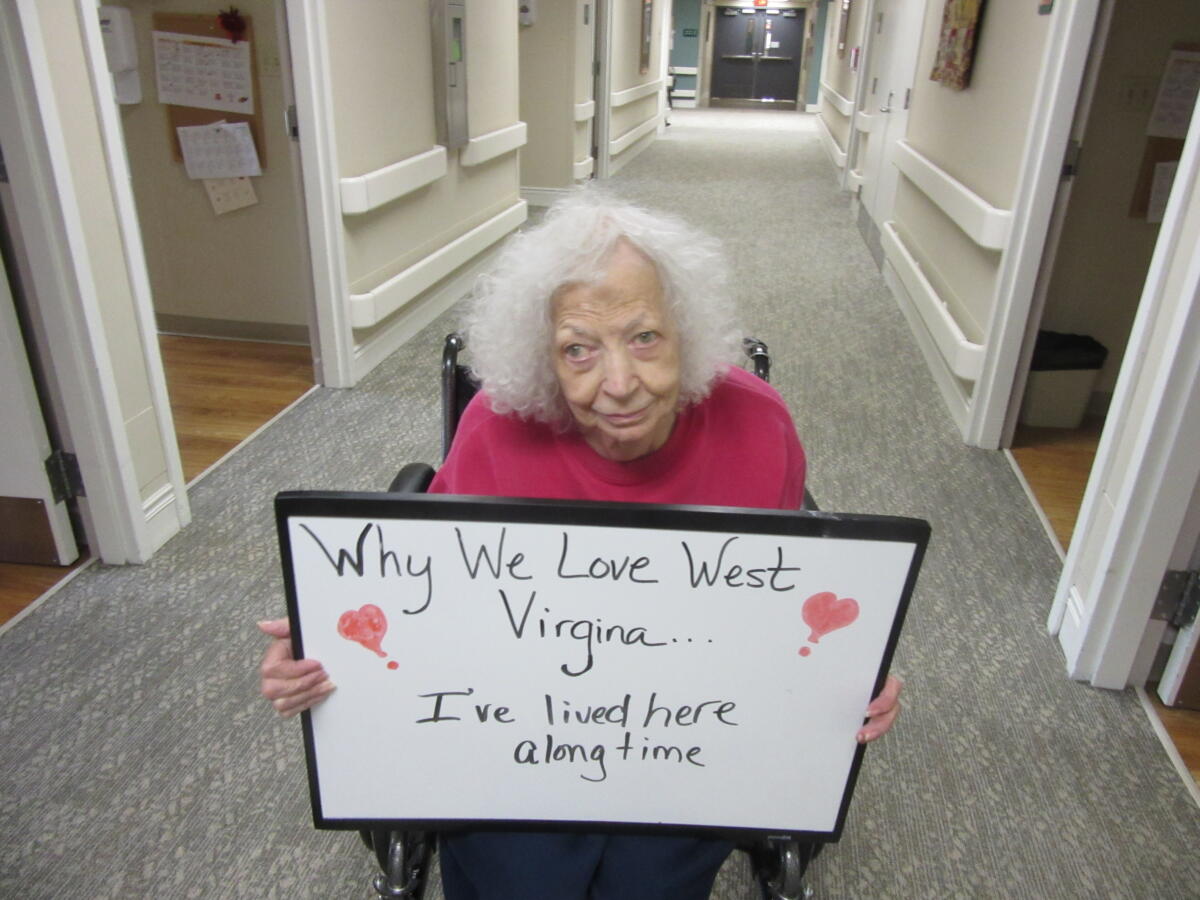 Why We Love West
Virgina...
I've lived here
along time